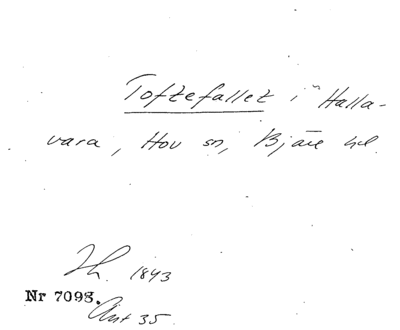 Toftefallet i Halla-
vara, Hov sn, Bjäre hd.
Th. 1843
Nr 7098.
Ant 35.